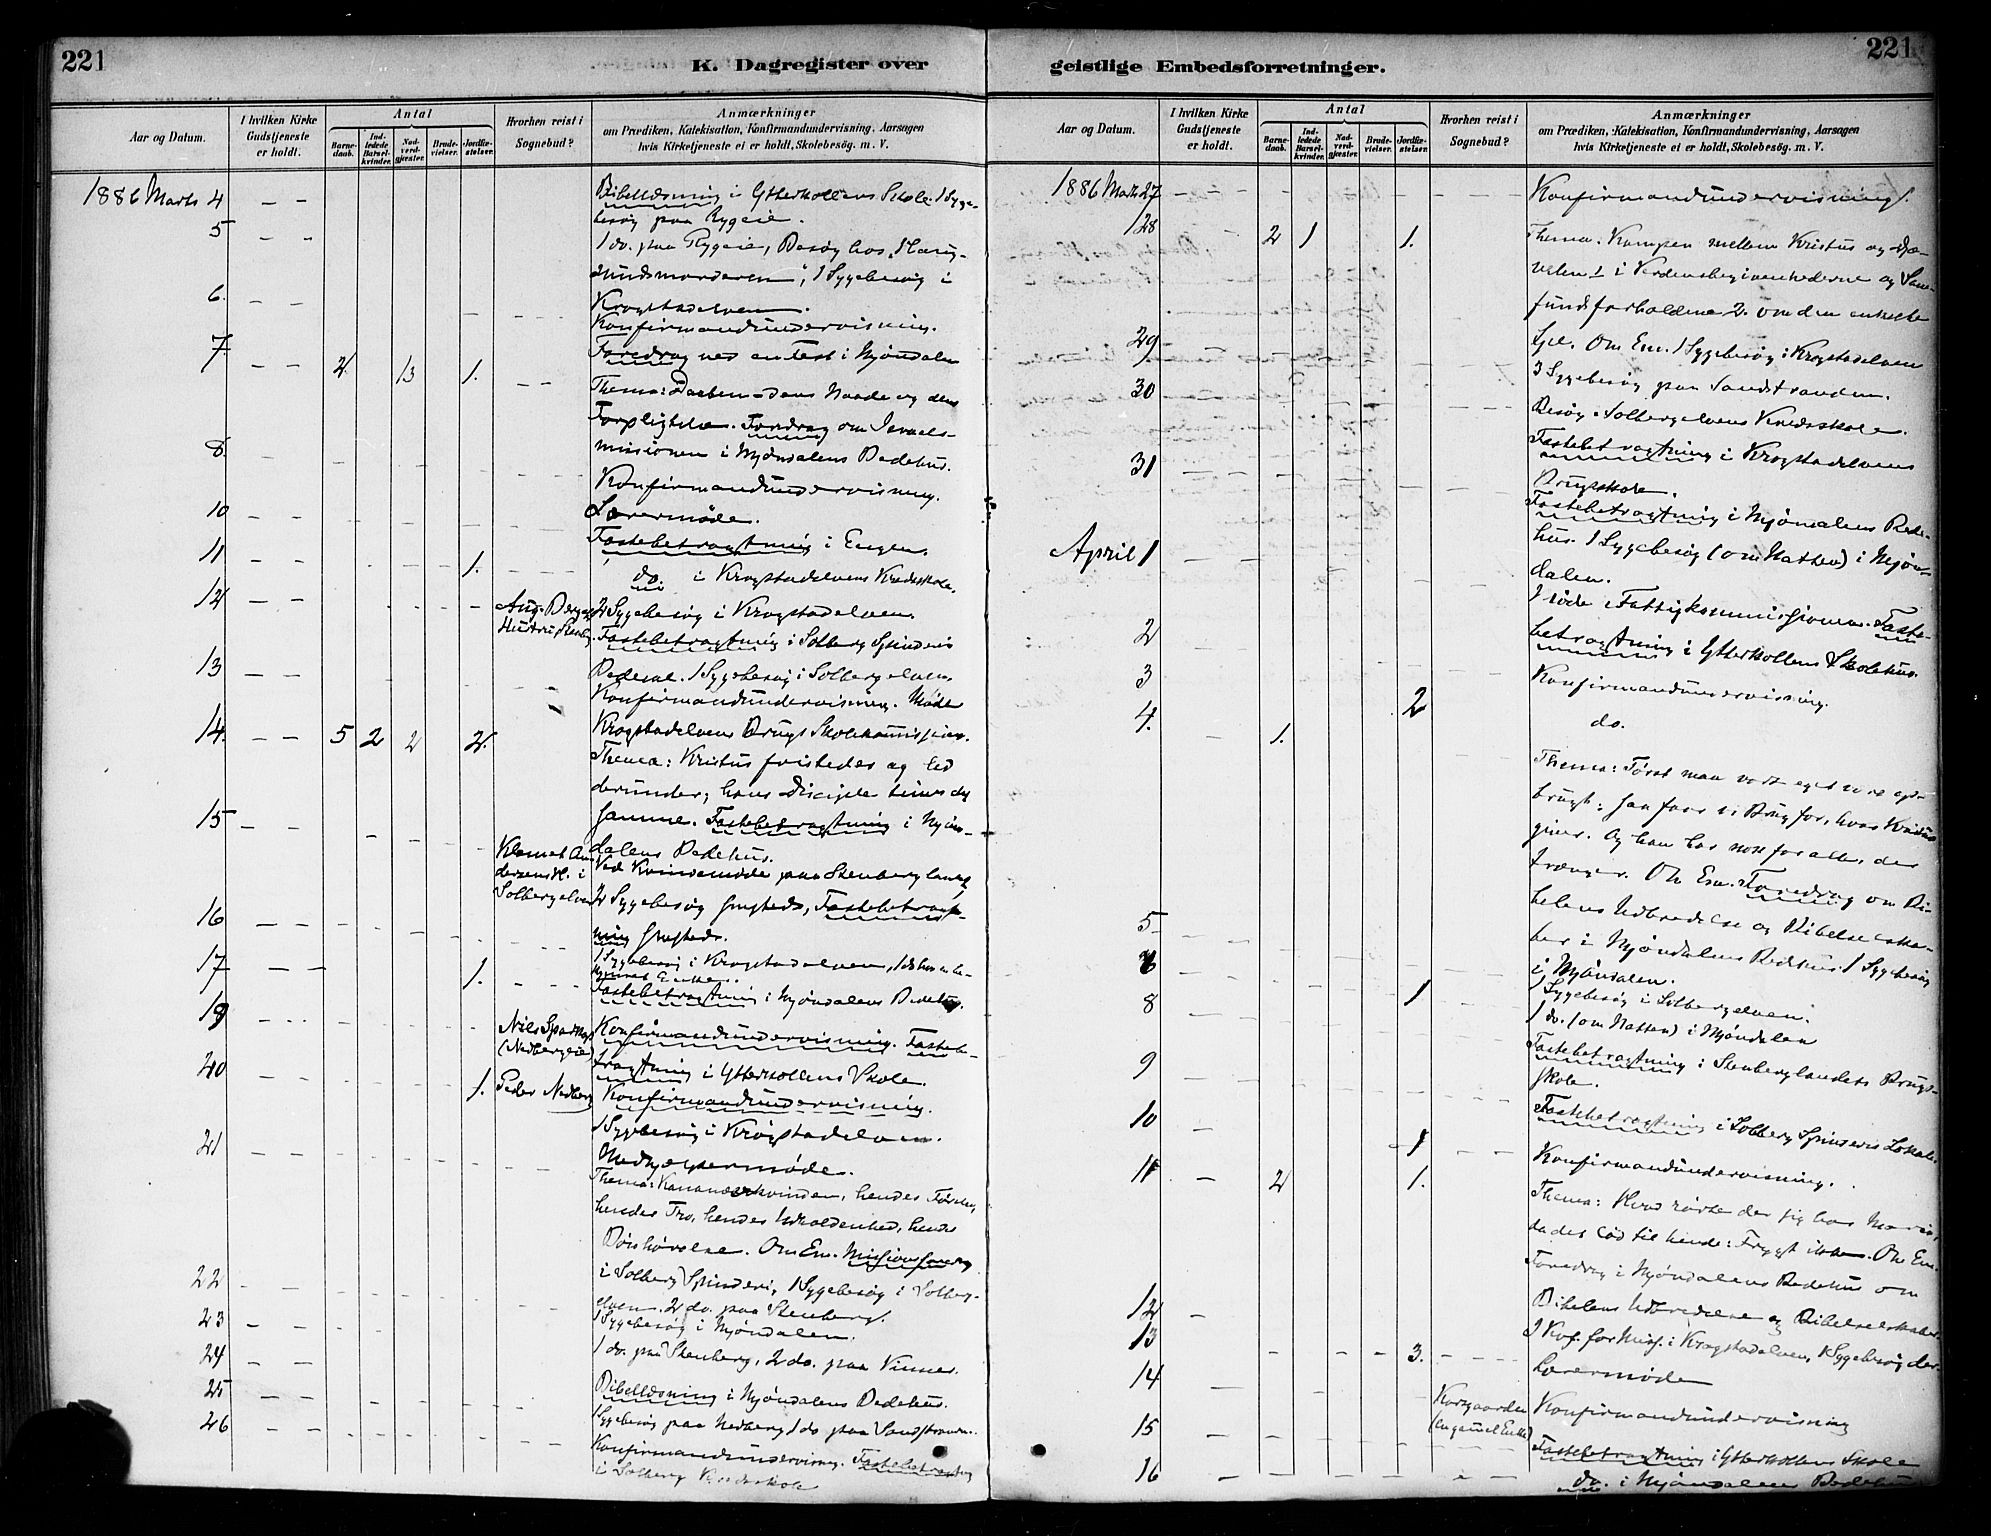 221
K. Dagregister over
Aar og Datum.
I hvilken Kirke Gudstjeneste er holdt.
Antal
Barnedaab.
Indledede Barselkvinder.
Nadverdgjæster.
Brudevielser.
Jordfæstelser.
Hvorhen reist i Sognebud?
Anmærkninger
om Prædiken, Katekisation, Konfirmandundervisning, Aarsagen
hvis Kirketjeneste ei er holdt, Skolebesøg. m. V.
1886 Marts 4 Bibellæsning i Ytterkollens Skole. 1 Syge-
besøg paa Rygeie.
5 1 do. paa Rygeie, Besøg hos
1 Sygebesøg i
Krogstadelven.
6. Konfirmandundervisning.
7 2. 13 1. Foredrag ved en Fest i Mjøndalen
Thema: Daaben dens Naade og dens
Forpligtelse. Foredrag om Israels-
missionen i Mjøndalens Bedehus.
8. Konfirmandundervisning.
Lærermøde.
10 Fastebetragtning i Engen.
11 1. do. i Krogstadelvens Kredsskole.
12 2 Sygebesøg i Krogstadelven.
Fastebetragtning i Solberg Spinderis
Bedesal. 1 Sygebesøg i Solbergelven
13 Konfirmandundervisning. Møde
Krogstadelvens Brugs Skolekommission.
14. 5 2 2 2. Thema: Kristus fristedes og led
derunder; hans Disciple ligesaa
samme. Fastebetragtning i Mjøn-
dalens Bedehus.
15 Klemet An
dersens H. i
Solbergelven
Ved Kvindemøde paa Stenberglandet
2 Sygebesøg smsteds, Fastebetragt-
ning smsteds.
16 1 Sygebesøg i Krogstadelven,
17 1. Fastebetragtning i Mjøndalens Bedehus.
19 Nils
(Nedbergeie)
Konfirmandundervisning. Fastebe-
tragtning i Ytterkollens Skole.
20 1. Peder Nedberg Konfirmandundervisning.
1 Sygebesøg i Krogstadelven.
Menighedsmøde.
21 Thema: Kananæerkvinden, hendes
hendes Tro, hendes Udholdenhed, hendes
Bønhørelse. Om Em. Missionsforedrag
i Solberg Spinderi, 1 Sygebesøg i Solberg-
elven. 2 do. paa Stenberg.
22 1 Sygebesøg i Mjøndalen.
23 1 do. paa Stenberg, 2 do. paa Vinnes.
24 Bibellæsning i Mjøndalens Bedehus.
25 1 Sygebesøg paa Nedberg 1 do paa Sandstranden.
26 Konfirmandundervisning. Fastebetragtning
i Solberg Kredsskole
221
geistlige Embedsforretninger.
Aar og Datum.
I hvilken Kirke Gudstjeneste er holdt.
Antal
Barnedaab.
Indledede Barselkvinder.
Nadverdgjæster.
Brudevielser.
Jordfæstelser.
Hvorhen reist i Sognebud?
Anmærkninger
om Prædiken, Katekisation, Konfirmandundervisning, Aarsagen
hvis Kirketjeneste ei er holdt, Skolebesøg. m. V.
1886 Marts 27 Konfirmandundervisning.
28 2 1 1. Thema: Kampen mellem Kristus og Djæ-
velen 1. i Verdensbegivenhederne og Sam-
fundsforholdene 2. om den enkelte
Sjel. Om Em. 1 Sygebesøg i Krogstadelven
29 3 Sygebesøg paa Sandstranden.
30 Besøg i Solbergelvens Kredsskole.
Fastebetragtning i Krogstadelvens
Brugsskole.
31 Fastebetragtning i Mjøndalens Bede-
hus. 1 Sygebesøg (om Natten) i Mjøn-
dalen.
April 1 Møde i Fattigkommissionen. Faste-
betragtning i Ytterkollens Skolehus.
2 Konfirmandundervisning.
3 do.
4. 1. 2 Thema: Først maa vort eget være op-
brugt; saa faar vi Brug for, hvad Kristus
giver. Og han har nok for alle, der
trænger. Om Em. Foredrag om Bi-
belens Udbredelse og Bibelselska-
ber i Mjøndalens Bedehus. 1 Sygebesøg
i Mjøndalen.
5 1 Sygebesøg i Solbergelven.
6 1 do. (om Natten) i Mjøndalen
8 1 Fastebetragtning i Stenberglandets Brugs-
skole.
9 Fastebetragtning i Solberg Spinderis Lokale.
10 1 Konfirmandundervisning.
11 2 1. Thema: Hvad rørte der sig hos Maria,
da det lød til hende: Frygt ikke. Om Em.
Foredrag i Mjøndalens Bedehus om
Bibelens Udbredelse og Bibelselskaber.
12 i Krogstadelven, 1 Sygebesøg der.
13 3. Lærermøde
14 Konfirmandundervisning
15 Fastebetragtning i Ytterkollens Skole
16 do. i Mjøndalens Bedehus